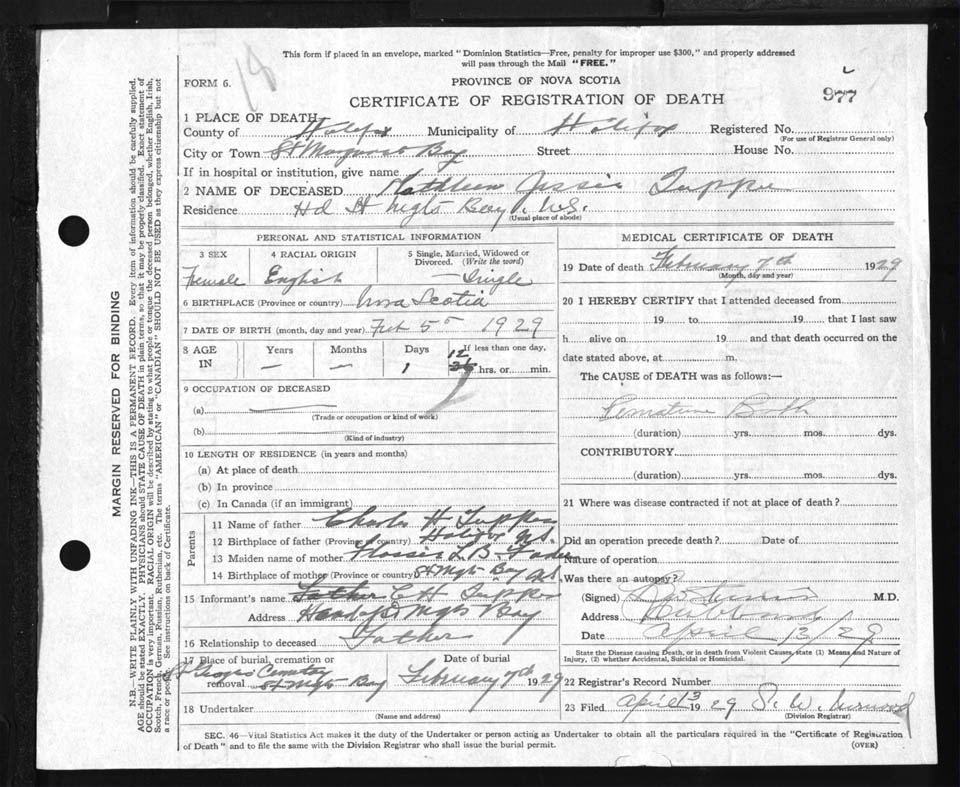 This form if placed in an envelope, marked "Dominion Statistics—Free, penalty for improper use $300," and properly addressed
will pass through the Mail "FREE."
18
FORM 6.
PROVINCE OF NOVA SCOTIA
CERTIFICATE OF REGISTRATION OF DEATH
977
1 PLACE OF DEATH
County of Halifax Municipality of Halifax Registered No.
(For use of Registrar General only)
City or Town St Margaret Bay Street House No.
If in hospital or institution, give name
2 NAME OF DECEASED Kathleen Jessie Tupper
Residence Hd St Mgts Bay. N.S.
(Usual place of abode)
PERSONAL AND STATISTICAL INFORMATION
3 SEX 4 RACIAL ORIGIN 5 Single, Married, Widowed or
Divorced. (Write the word)
Female English Single
6 BIRTHPLACE (Province or country) Nova Scotia
7 DATE OF BIRTH (month, day and year) Feb 5 1929
8 AGE IN Years Months Days If less than one day,
— — 1 12 hrs. or min.
9 OCCUPATION OF DECEASED
(a)
(Trade or occupation or kind of work)
(b)
(Kind of industry)
10 LENGTH OF RESIDENCE (in years and months)
(a) At place of death
(b) In province
(c) In Canada (if an immigrant)
Parents
11 Name of father Charles H Tupper
12 Birthplace of father (Province or country) Halifax N.S.
13 Maiden name of mother Flossie L B Fader
14 Birthplace of mother (Province or country) St Mgts Bay N.S.
15 Informant's name Father C H Tupper
Address Head of St Mgts Bay
16 Relationship to deceased Father
17 Place of burial, cremation or Date of burial
removal St Mgts Bay February 7th 1929
Cemetery
18 Undertaker
(Name and address)
MEDICAL CERTIFICATE OF DEATH
19 Date of death February 7th 1929
(Month, day and year)
20 I HEREBY CERTIFY that I attended deceased from
19 to 19 that I last saw
h alive on 19 and that death occurred on the
date stated above, at m.
The CAUSE of DEATH was as follows:—
Premature Birth
(duration) yrs. mos. dys.
CONTRIBUTORY
(duration) yrs. mos. dys.
21 Where was disease contracted if not at place of death?
Did an operation precede death? Date of
Nature of operation
Was there an autopsy?
(Signed) M.D.
Address Hubbards
Date April 3/29
State the Disease causing Death, or in death from Violent Causes, state (1) Means and Nature of
Injury, (2) whether Accidental, Suicidal or Homicidal.
22 Registrar's Record Number
23 Filed April 3 1929 S. W.
(Division Registrar)
SEC. 46—Vital Statistics Act makes it the duty of the Undertaker or person acting as Undertaker to obtain all the particulars required in the "Certificate of Registration
of Death" and to file the same with the Division Registrar who shall issue the burial permit.
(OVER)
MARGIN RESERVED FOR BINDING
N.B.—WRITE PLAINLY WITH UNFADING INK—THIS IS A PERMANENT RECORD. Every item of information should be carefully supplied.
AGE should be stated EXACTLY. PHYSICIANS should STATE CAUSE OF DEATH in plain terms, so that it may be properly classified. Exact statement of
OCCUPATION is very important. RACIAL ORIGIN will be described by stating to what people or tongue the deceased person belonged, whether English, Irish,
Scotch, French, German, Russian, Ruthenian, etc. The terms "AMERICAN" or "CANADIAN" SHOULD NOT BE USED as they express citizenship but not
a race or people. See instructions on back of Certificate.